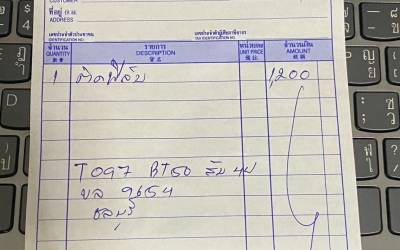 CUSTOMER
ที่อยู่ 住址
ADDRESS
เลขประจำตัวประชาชน เลขประจำตัวผู้เสียภาษีอากร
IDENTIFICATION NO. TAX IDENTIFICATION NO.
จำนวน รายการ หน่วยละ จำนวนเงิน
QUANTITY DESCRIPTION UNIT PRICE AMOUNT
數量 貨名 價目 銀碼
1 ติดฟิล์ม 1,200
T097 BT50 สีบ 4ป
ผล 9654
ชลบุรี